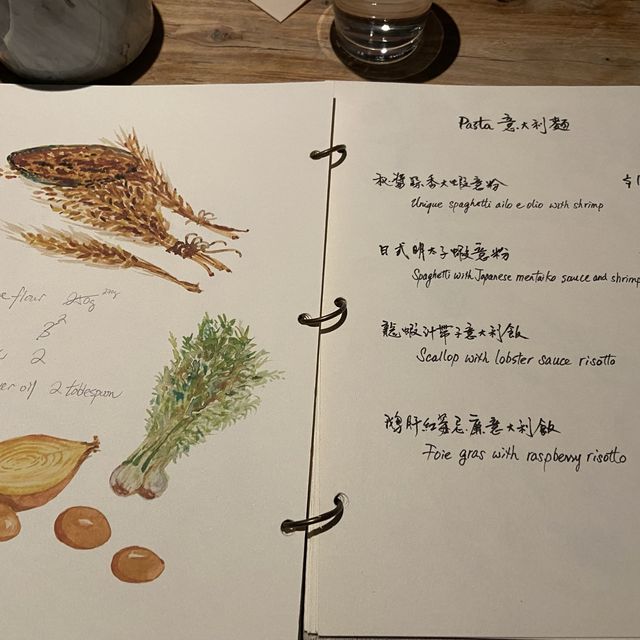 e flour 250g
2
2
er oil 2 tablespoon
Pasta 意大利麵
秘醬蒜香大蝦意粉
Unique spaghetti ailo e olio with shrimp
日式明太子蝦意粉
Spaghetti with Japanese mentaiko sauce and shrimp
龍蝦汁帶子意大利飯
Scallop with lobster sauce risotto
鵝肝紅莓意大利飯
Foie gras with raspberry risotto